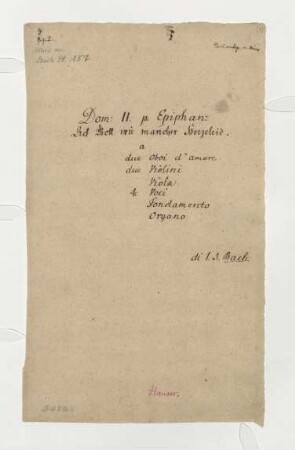 Dom: II. p Epiphan:
Ach Gott wie mancher Herzeleid.
a
due Oboi d'amore
due Violini
Viola
4 Voci
Fondamento
Organo
di I. S. Bach.
Hauser.